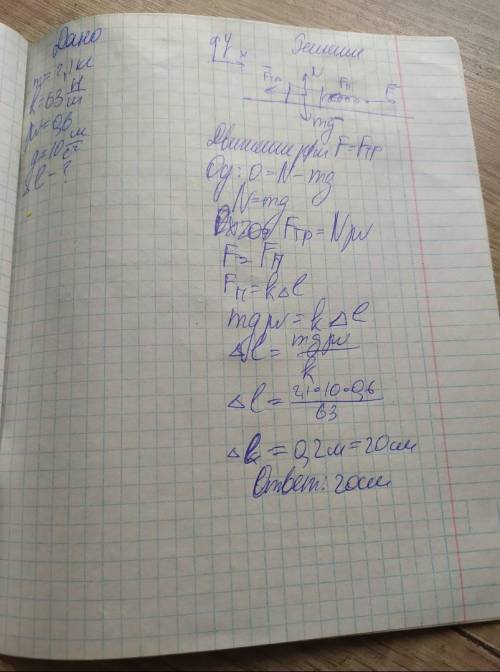 Дано
m = 2,1 кг
k = 63 Н/м
μ = 0,6
g = 10 м/с²
Δl - ?
Решение
y
x
Fтр N Fп F
mg
Движение при F = Fтр
Oy: 0 = N - mg
N = mg
Fтр = Nμ
F = Fп
Fп = kΔl
mgμ = kΔl
Δl = mgμ/k
Δl = 2,1·10·0,6/63
Δl = 0,2м = 20см
Ответ: 20см